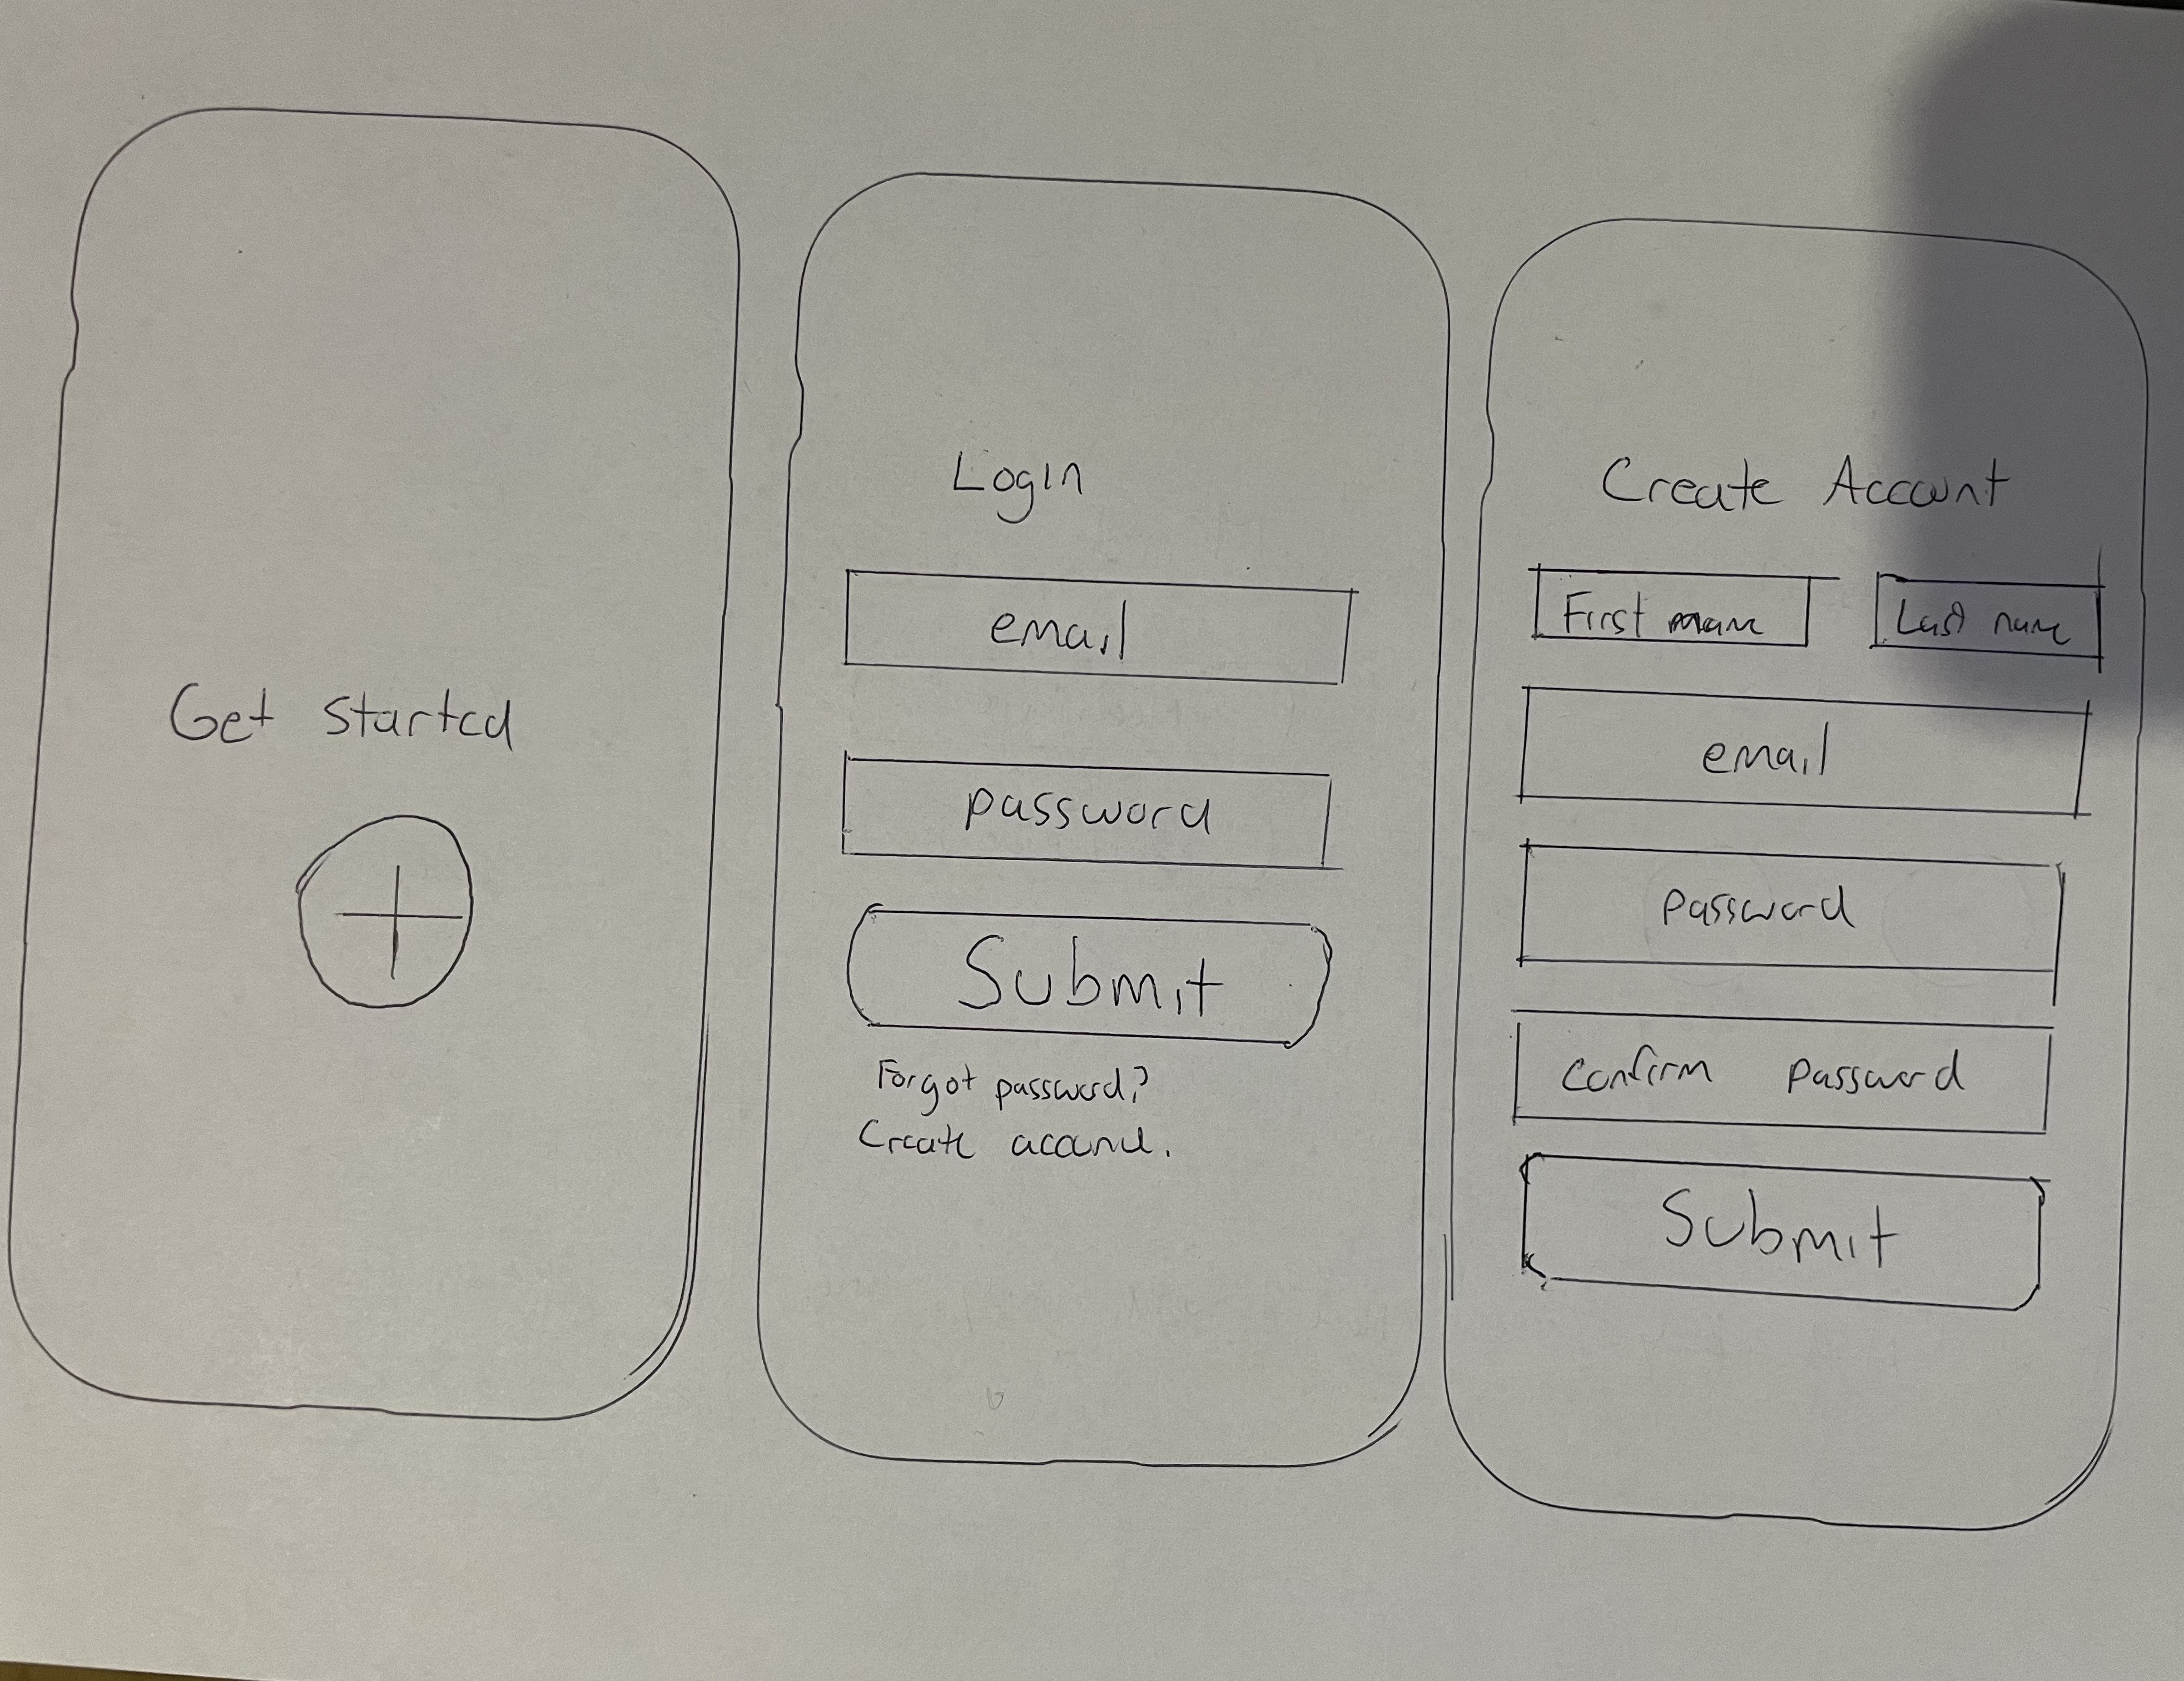 Get started
Login
email
password
Submit
Forgot password?
Create account.
Create Account
First name
Last name
email
password
Confirm password
Submit